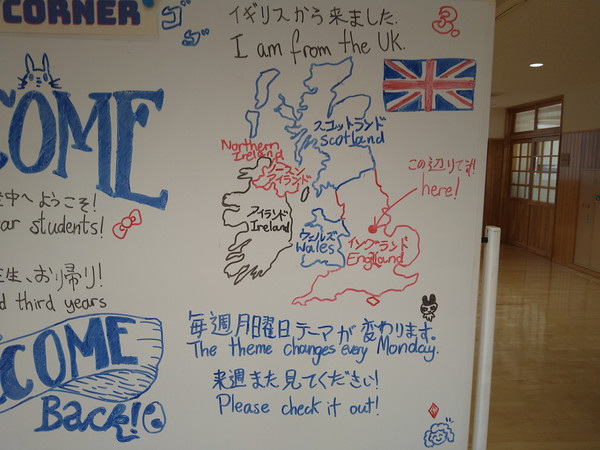 CORNER
COME
中へようこそ!
ar students!
生、お帰り!
d third years
COME
Back!
イギリスから来ました.
I am from the UK.
スコットランド
Scotland
Northern
Ireland
アイランド
アイランド
Ireland
ウェルズ
Wales
イングランド
England
この辺りです!
here!
毎週月曜日テーマが変わります。
The theme changes every Monday.
来週また見てください!
Please check it out!